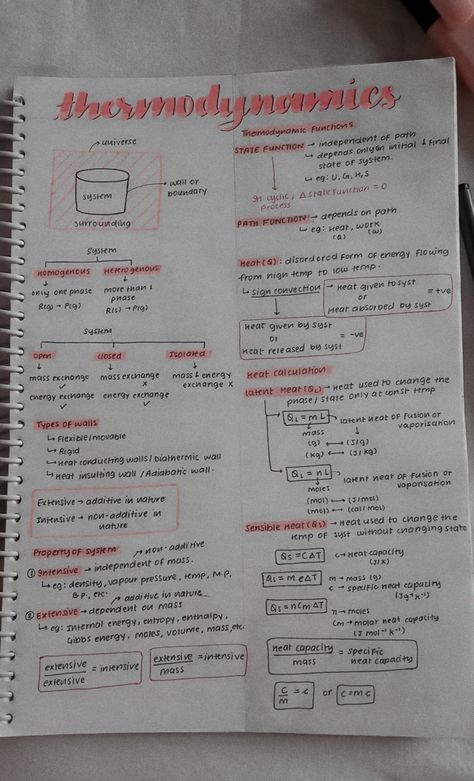 thermodynamics
universe
system
wall or
boundary
surrounding
System
Homogenous
Heterogenous
only one phase
more than 1
phase
R(g) → P(g)
R(s) → P(g)
System
Open
Closed
Isolated
mass exchange ✓
mass exchange x
mass & energy
exchange x
energy exchange ✓
energy exchange ✓
Types of walls
↳ Flexible/movable
↳ Rigid
↳ Heat conducting walls / Diathermic wall
↳ Heat insulting wall / Adiabatic wall.
Extensive → additive in nature
Intensive → non-additive in
nature
Property of system
→ non-additive
① Intensive → independent of mass.
↳ eg: density, vapour pressure, temp, M.P,
B.P, etc.
→ additive in nature
② Extensive → dependent on mass
↳ eg: Internal energy, entropy, enthalpy,
Gibbs energy, moles, volume, mass, etc.
extensive / extensive = intensive
extensive / mass = intensive
Thermodynamic Functions
STATE FUNCTION → independent of path
→ depends only on initial & final
state of system.
↳ eg: U, G, H, S
In cyclic, Δ state function = 0
process
PATH FUNCTION → depends on path
↳ eg: Heat, work
(Q) (W)
Heat (Q): disordered form of energy flowing
from high temp to low temp.
↳ sign convection → Heat given to syst
or
Heat absorbed by syst
= +ve
Heat given by syst
or
Heat released by syst
= -ve
Heat calculation
latent Heat (QL) → Heat used to change the
phase / state only at const temp
QL = mL
latent heat of fusion or
vaporisation
mass
(g) ⟷ (J/g)
(kg) ⟷ (J/kg)
QL = nL
latent heat of fusion or
vaporisation
moles
(mol) ⟷ (J/mol)
(mol) ⟷ (cal/mol)
Sensible Heat (Qs) → Heat used to change the
temp of syst without changing state
Qs = CΔT
C → Heat capacity
(J/K)
Qs = mcΔT
m → mass (g)
c → specific heat capacity
(Jg⁻¹K⁻¹)
Qs = nCmΔT
n → moles
Cm → molar heat capacity
(J mol⁻¹K⁻¹)
Heat capacity / mass = specific
heat capacity
C/m = c or C = mc